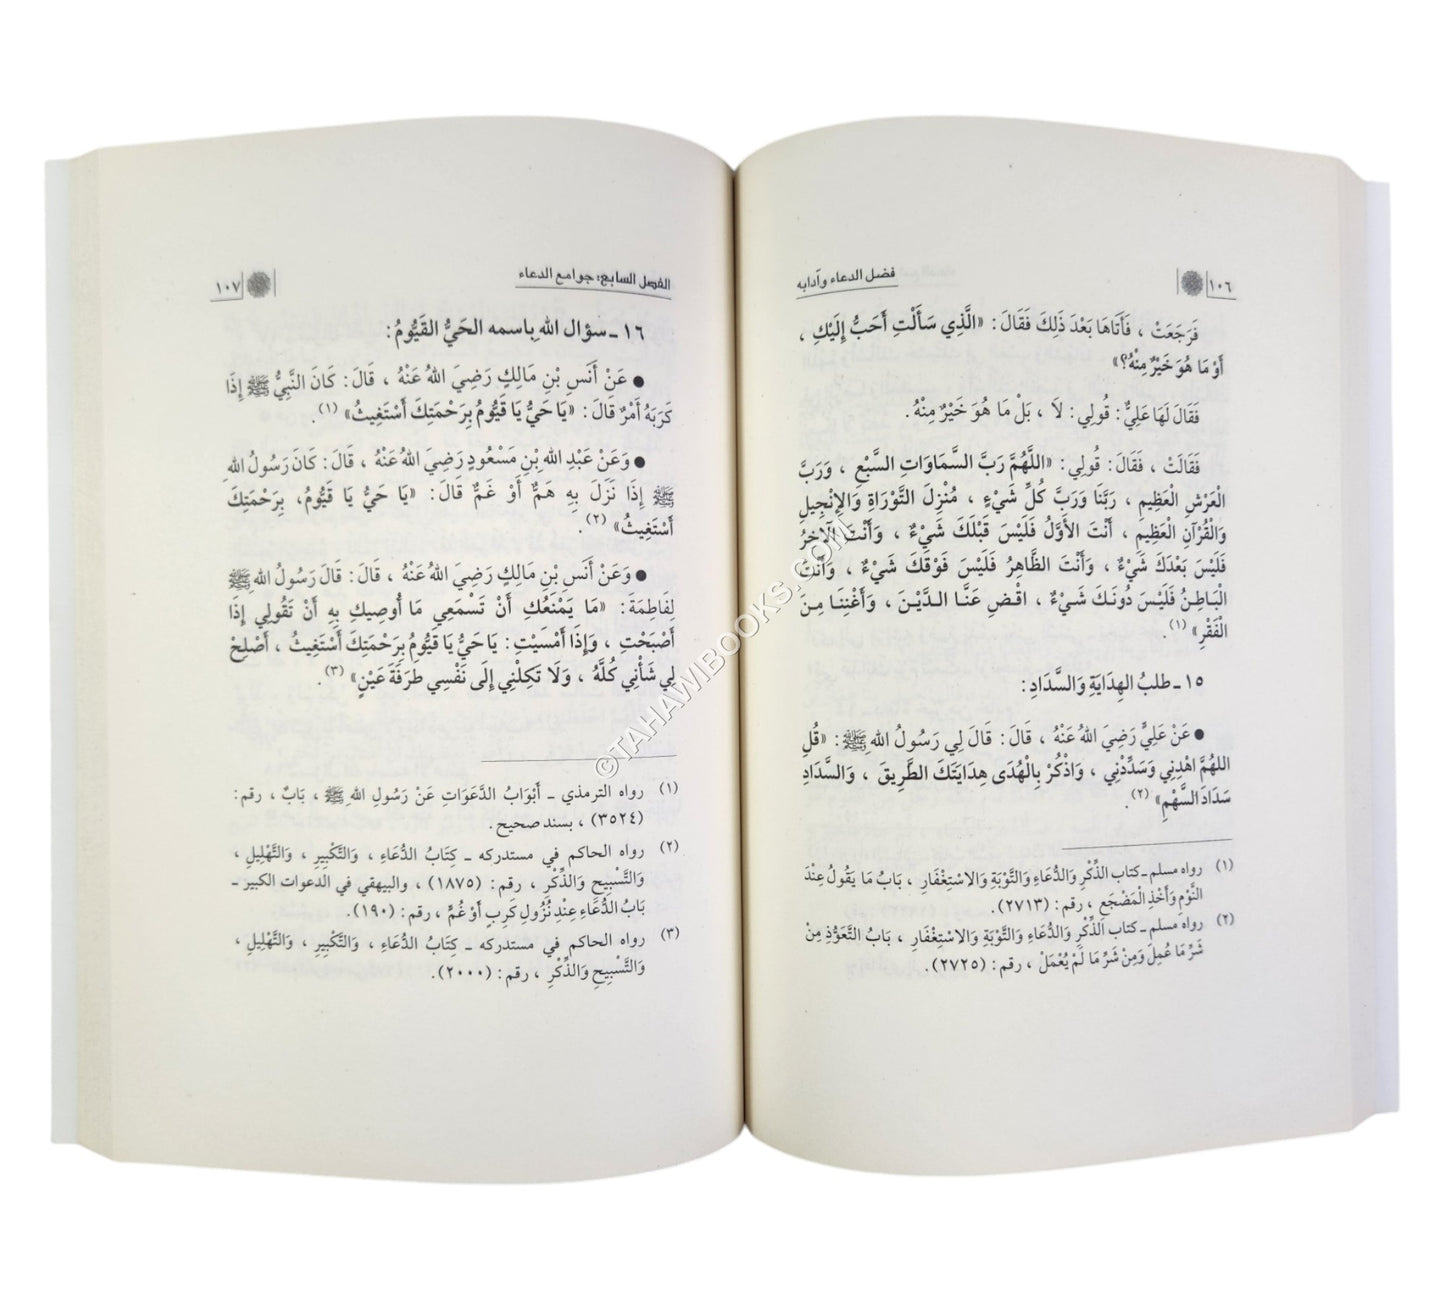 ١٠٦
فضل الدعاء وآدابه
فَرَجَعَتْ ، فَأَتَاهَا بَعْدَ ذَلِكَ فَقَالَ: «الَّذِي سَأَلْتِ أَحَبُّ إِلَيْكِ ،
أَوْ مَا هُوَ خَيْرٌ مِنْهُ؟»
فَقَالَ لَهَا عَلِيٌّ: قُولِي: لاَ ، بَلْ مَا هُوَ خَيْرٌ مِنْهُ.
فَقَالَتْ ، فَقَالَ: قُولِي: «اللَّهُمَّ رَبَّ السَّمَاوَاتِ السَّبْعِ ، وَرَبَّ
الْعَرْشِ الْعَظِيمِ ، رَبَّنَا وَرَبَّ كُلِّ شَيْءٍ ، مُنْزِلَ التَّوْرَاةِ وَالإِنْجِيلِ
وَالْقُرْآنِ الْعَظِيمِ ، أَنْتَ الأَوَّلُ فَلَيْسَ قَبْلَكَ شَيْءٌ ، وَأَنْتَ الآخِرُ
فَلَيْسَ بَعْدَكَ شَيْءٌ ، وَأَنْتَ الظَّاهِرُ فَلَيْسَ فَوْقَكَ شَيْءٌ ، وَأَنْتَ
الْبَاطِنُ فَلَيْسَ دُونَكَ شَيْءٌ ، اقْضِ عَنَّا الدَّيْنَ ، وَأَغْنِنَا مِنَ
الْفَقْرِ» (١).
١٥ ـ طلبُ الهِدَايَةِ وَالسَّدَادِ:
● عَنْ عَلِيٍّ رَضِيَ اللهُ عَنْهُ ، قَالَ: قَالَ لِي رَسُولُ اللهِ ﷺ: «قُلِ
اللهُمَّ اهْدِنِي وَسَدِّدْنِي ، وَاذْكُرْ بِالْهُدَى هِدَايَتَكَ الطَّرِيقَ ، وَالسَّدَادِ
سَدَادَ السَّهْمِ» (٢).
(١) رواه مسلم ـ كتاب الذِّكْرِ وَالدُّعَاءِ وَالتَّوْبَةِ وَالاسْتِغْفَارِ ، بَابُ مَا يَقُولُ عِنْدَ
النَّوْمِ وَأَخْذِ الْمَضْجَعِ ، رقم: (٢٧١٣).
(٢) رواه مسلم ـ كتاب الذِّكْرِ وَالدُّعَاءِ وَالتَّوْبَةِ وَالاسْتِغْفَارِ ، بَابُ التَّعَوُّذِ مِنْ
شَرِّ مَا عُمِلَ وَمِنْ شَرِّ مَا لَمْ يُعْمَلْ ، رقم: (٢٧٢٥).
الفصل السابع: جوامع الدعاء
١٠٧
١٦ ـ سؤال الله بِاسمه الحَيُّ القَيُّومُ:
● عَنْ أَنَسِ بْنِ مَالِكٍ رَضِيَ اللهُ عَنْهُ ، قَالَ: كَانَ النَّبِيُّ ﷺ إِذَا
كَرَبَهُ أَمْرٌ قَالَ: «يَا حَيُّ يَا قَيُّومُ بِرَحْمَتِكَ أَسْتَغِيثُ» (١).
● وَعَنْ عَبْدِ اللهِ بْنِ مَسْعُودٍ رَضِيَ اللهُ عَنْهُ ، قَالَ: كَانَ رَسُولُ اللهِ
ﷺ إِذَا نَزَلَ بِهِ هَمٌّ أَوْ غَمٌّ قَالَ: «يَا حَيُّ يَا قَيُّومُ، بِرَحْمَتِكَ
أَسْتَغِيثُ» (٢).
● وَعَنْ أَنَسِ بْنِ مَالِكٍ رَضِيَ اللهُ عَنْهُ ، قَالَ: قَالَ رَسُولُ اللهِ ﷺ
لِفَاطِمَةَ: «مَا يَمْنَعُكِ أَنْ تَسْمَعِي مَا أُوصِيكِ بِهِ أَنْ تَقُولِي إِذَا
أَصْبَحْتِ ، وَإِذَا أَمْسَيْتِ: يَا حَيُّ يَا قَيُّومُ بِرَحْمَتِكَ أَسْتَغِيثُ ، أَصْلِحْ
لِي شَأْنِي كُلَّهُ ، وَلَا تَكِلْنِي إِلَى نَفْسِي طَرْفَةَ عَيْنٍ» (٣).
(١) رواه الترمذي ـ أَبْوَابُ الدَّعَوَاتِ عَنْ رَسُولِ اللهِ ﷺ ، بَابٌ ، رقم:
(٣٥٢٤) ، بسند صحيح.
(٢) رواه الحاكم في مستدركه ـ كِتَابُ الدُّعَاءِ ، وَالتَّكْبِيرِ ، وَالتَّهْلِيلِ ،
وَالتَّسْبِيحِ وَالذِّكْرِ ، رقم: (١٨٧٥) ، والبيهقي في الدعوات الكبير ـ
بَابُ الدُّعَاءِ عِنْدَ نُزُولِ كَرِبٍ أَوْ غُمٍّ ، رقم: (١٩٠).
(٣) رواه الحاكم في مستدركه ـ كِتَابُ الدُّعَاءِ ، وَالتَّكْبِيرِ ، وَالتَّهْلِيلِ ،
وَالتَّسْبِيحِ وَالذِّكْرِ ، رقم: (٢٠٠٠).
©TAHAWIBOOKS.COM